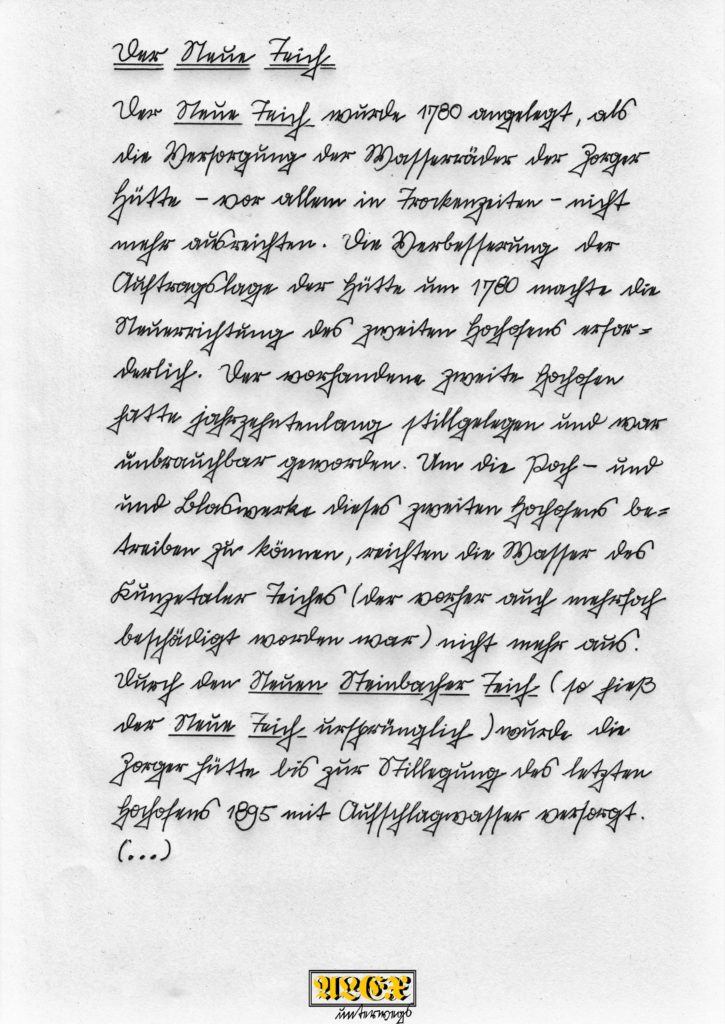 Der Neue Teich
Der Neue Teich wurde 1780 angelegt, als
die Versorgung der Wasserräder der Zorger
Hütte – vor allem in Trockenzeiten – nicht
mehr ausreichten. Die Verbesserung der
Auftragslage der Hütte um 1780 machte die
Neuerrichtung des zweiten Hochofens erfor=
derlich. Der vorhandene zweite Hochofen
hatte jahrzehntenlang stillgelegen und war
unbrauchbar geworden. Um die Poch – und
und Blaswerke dieses zweiten Hochofens be=
treiben zu können, reichten die Wasser des
Kunzetaler Teiches (der vorher auch mehrfach
beschädigt worden war) nicht mehr aus.
Durch den Neuen Steinbacher Teich (so hieß
der Neue Teich ursprünglich) wurde die
Zorger Hütte bis zur Stillegung des letzten
Hochofens 1895 mit Aufschlagwasser versorgt.
(...)
ALEX
unterwegs